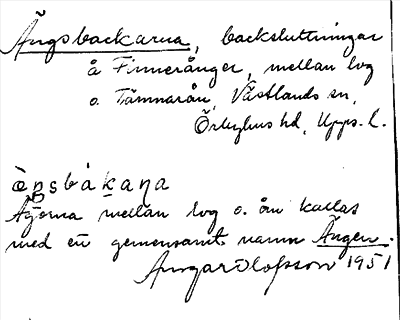 Ängsbackarna, backsluttningar
å Finnerånger, mellan lvg
o. Tämnarån, Västlands sn,
Örbyhus hd, Upps. l.
ò̀nsbákana
Ägorna mellan lvg o. ån kallas
med ett gemensamt namn Ängen.
Ansgar Olofsson 1951